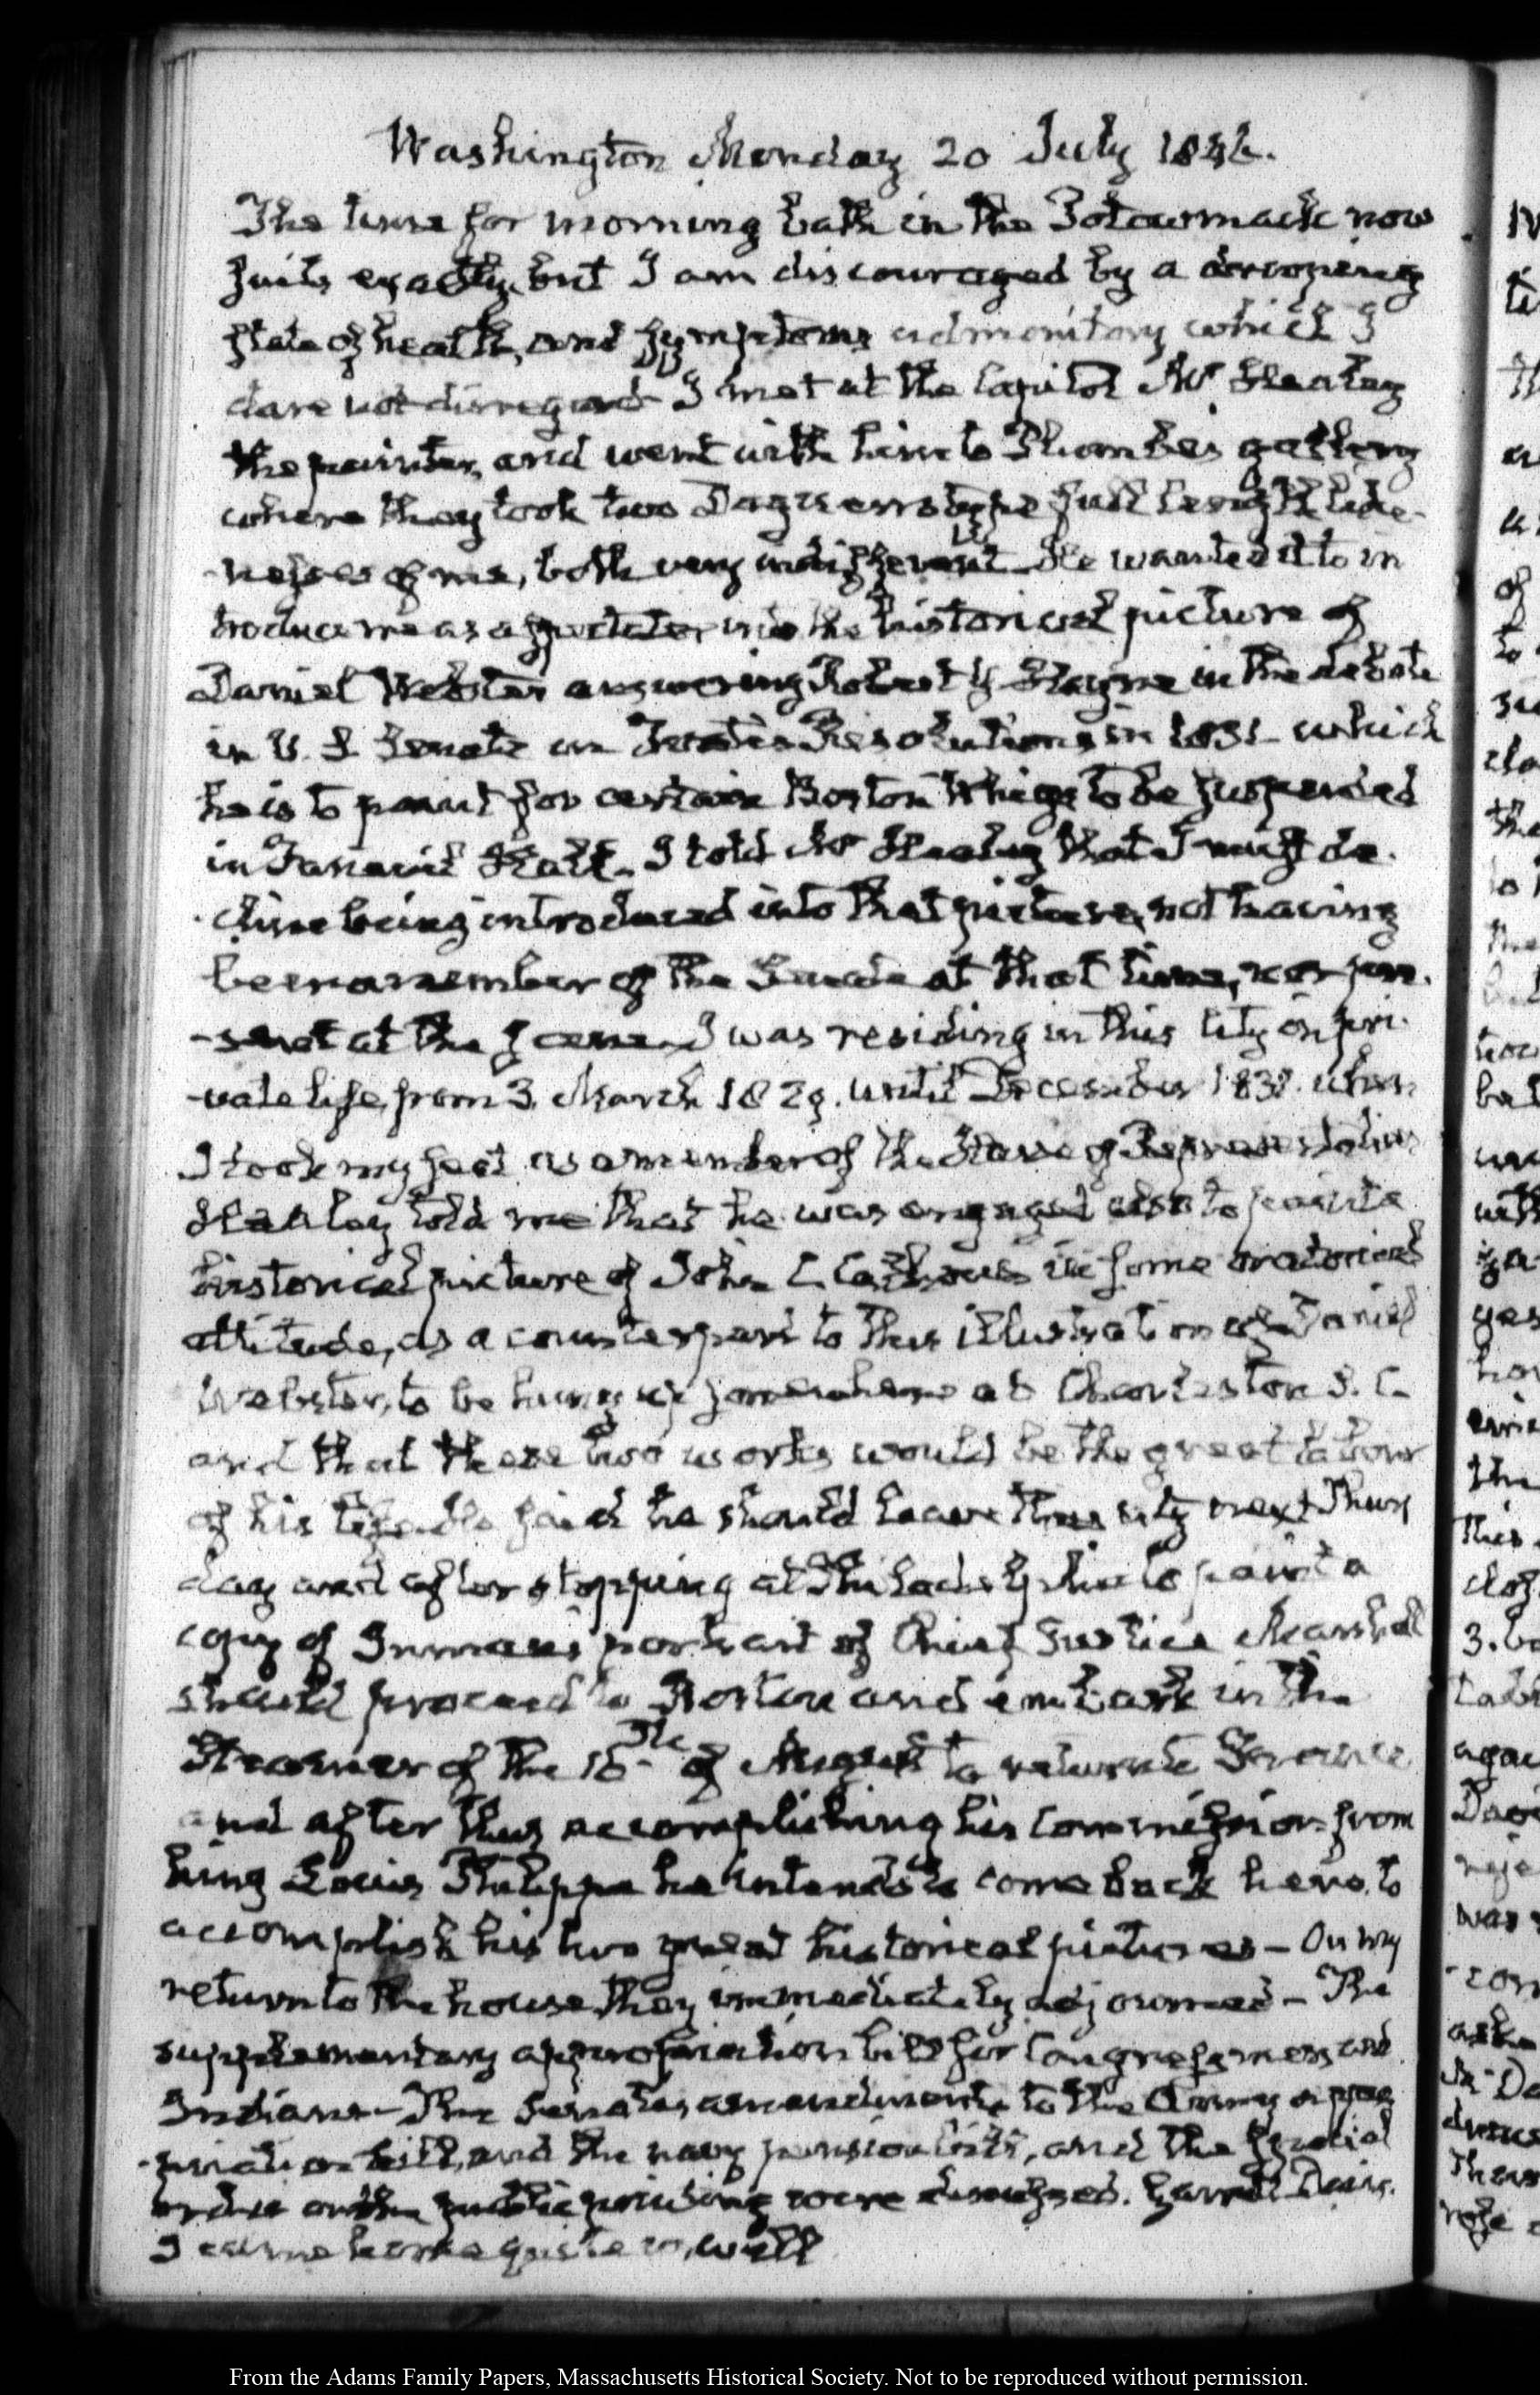 Washington Monday 20 July 1846.
The time for morning bath in the Potowmack now
suits exactly, but I am discouraged by a drooping
state of health, and symptoms admonitory which I
dare not disregard— I met at the Capitol Mr Healey
the painter, and went with him to Plumbe's gallery
where they took two Daguerrotype full length like-
-nesses of me, both very indifferent— He wanted it to in
troduce me as a spectator into the historical picture of
Daniel Webster answering Robert Y. Hayne in the debate
in U. S. Senate on Foote's Resolutions in 1831— which
he is to paint for certain Boston Whigs to be suspended
in Faneuil Hall— I told Mr Healey that I must de-
-cline being introduced into that picture, not having
been a member of the Senate at that time, nor pre-
-sent at the scene— I was residing in this City in pri-
-vate life, from 3. March 1829. until December 1831. when
I took my seat as a member of the House of Representatives
Healey told me that he was engaged also to paint a
historical picture of John C. Calhoun in some oratorical
attitude, as a counterpart to this illustration of Daniel
Webster, to be hung up somewhere at Charleston S. C.
and that these two works would be the great labour
of his life— He said he should leave this city next Thurs
day and after stopping at Philadelphia to paint a
copy of Inman's portrait of Chief Justice Marshall
should proceed to Boston and embark in the
Steamer of the 16th of August to return to France
and after thus accomplishing his commission from
king Louis Philippe he intends to come back here to
accomplish his two great historical pictures— On my
return to the house, they immediately adjourned— The
supplementary appropriation bill for Congressmen and
Indians— The Senate's amendments to the Army appro
-priation bill, and the navy pension bill, and the special
order on the public printing were discussed. Garrett Davis.
I came home quite unwell